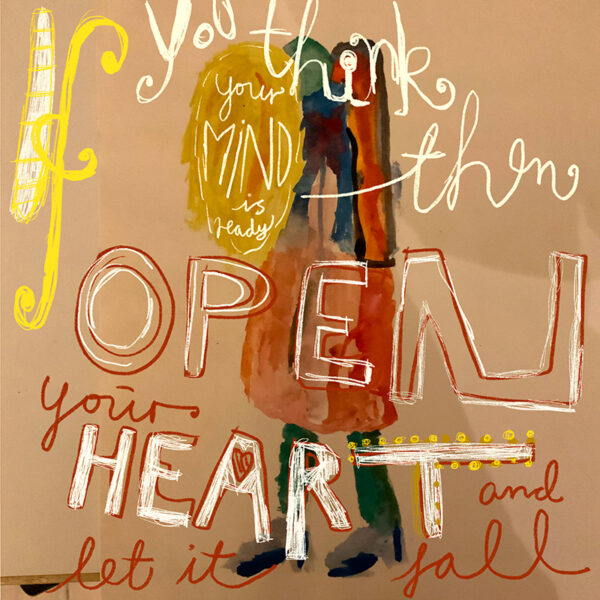 If you think
your
MIND
is
ready
then
OPEN
your
HEART
and
let it fall